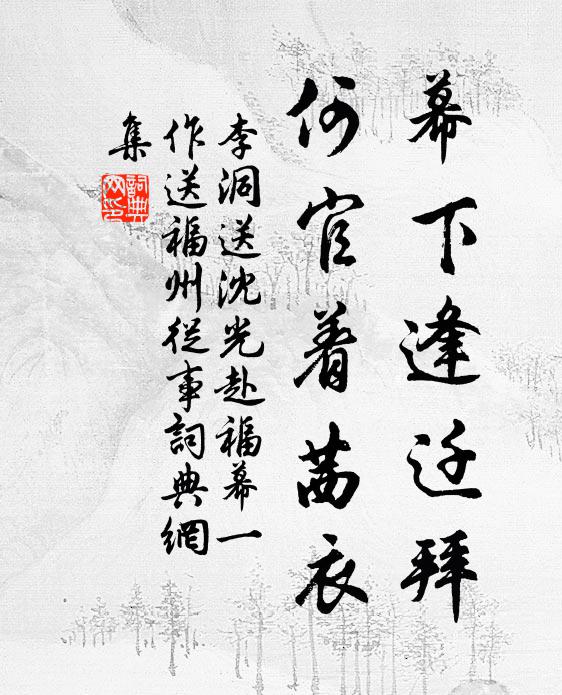 幕下逢迁拜
何官着茜衣
李洞送沈光赴福幕一
作送福州從事詞典網
集
詞典網印